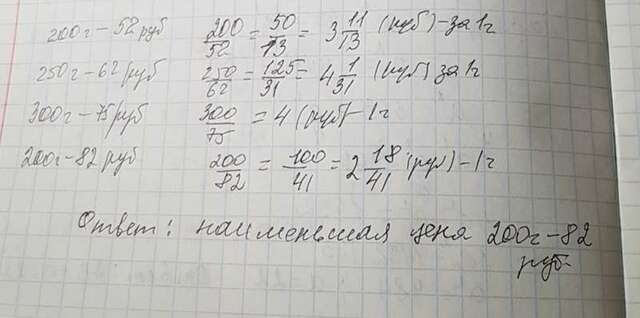 200г - 52 руб 200/52 = 50/13 = 3 11/13 (руб) - за 1г
250г - 62 руб 250/62 = 125/31 = 4 1/31 (руб) за 1г
300г - 75 руб 300/75 = 4 (руб) - 1г
200г - 82 руб 200/82 = 100/41 = 2 18/41 (руб) - 1г
Ответ: наименьшая цена 200г - 82
руб.